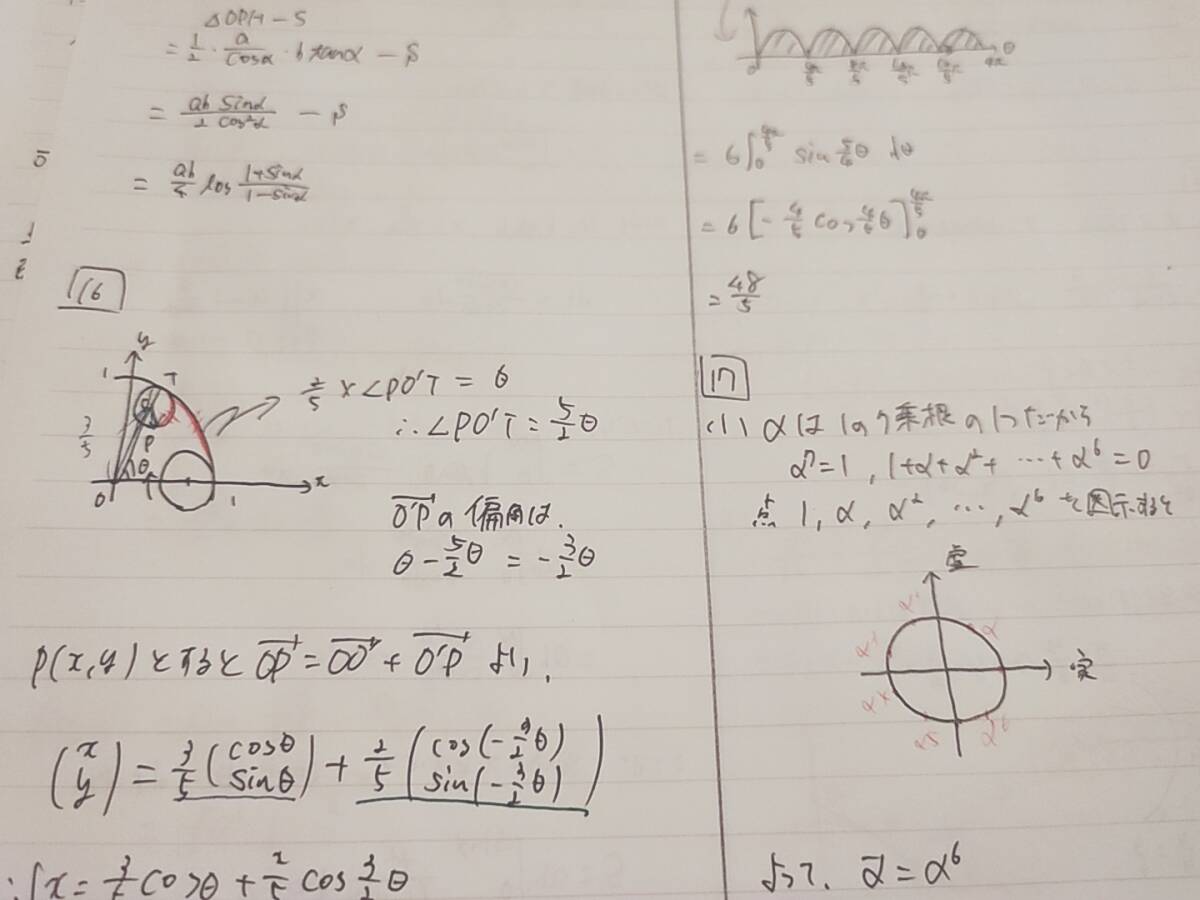 △OPH - S
= 1/2 · a/cosα · b tanα - S
= ab/2 sinα/cos²α - S
= ab/4 log (1+sinα)/(1-sinα)
116
y
1
T
3/5
P
θ
O
1
x
2/5 × ∠PO'T = θ
∴ ∠PO'T = 5/2 θ
O'Pの偏角は、
θ - 5/2 θ = -3/2 θ
P(x,y)とするとOP = OO' + O'P より、
(x y) = 3/5 (cosθ sinθ) + 2/5 (cos(-3/2 θ) sin(-3/2 θ))
x = 3/5 cosθ + 2/5 cos 3/2 θ
θ
= 6 ∫
sin 5/4 θ dθ
= 6 [
= 48/5
117
(1) αは1の7乗根の1つだから
α⁷=1, 1+α+α²+ … +α⁶=0
点 1, α, α², …, α⁶ を図示すると
虚
実
α
α⁵
α⁶
よって、ᾱ = α⁶